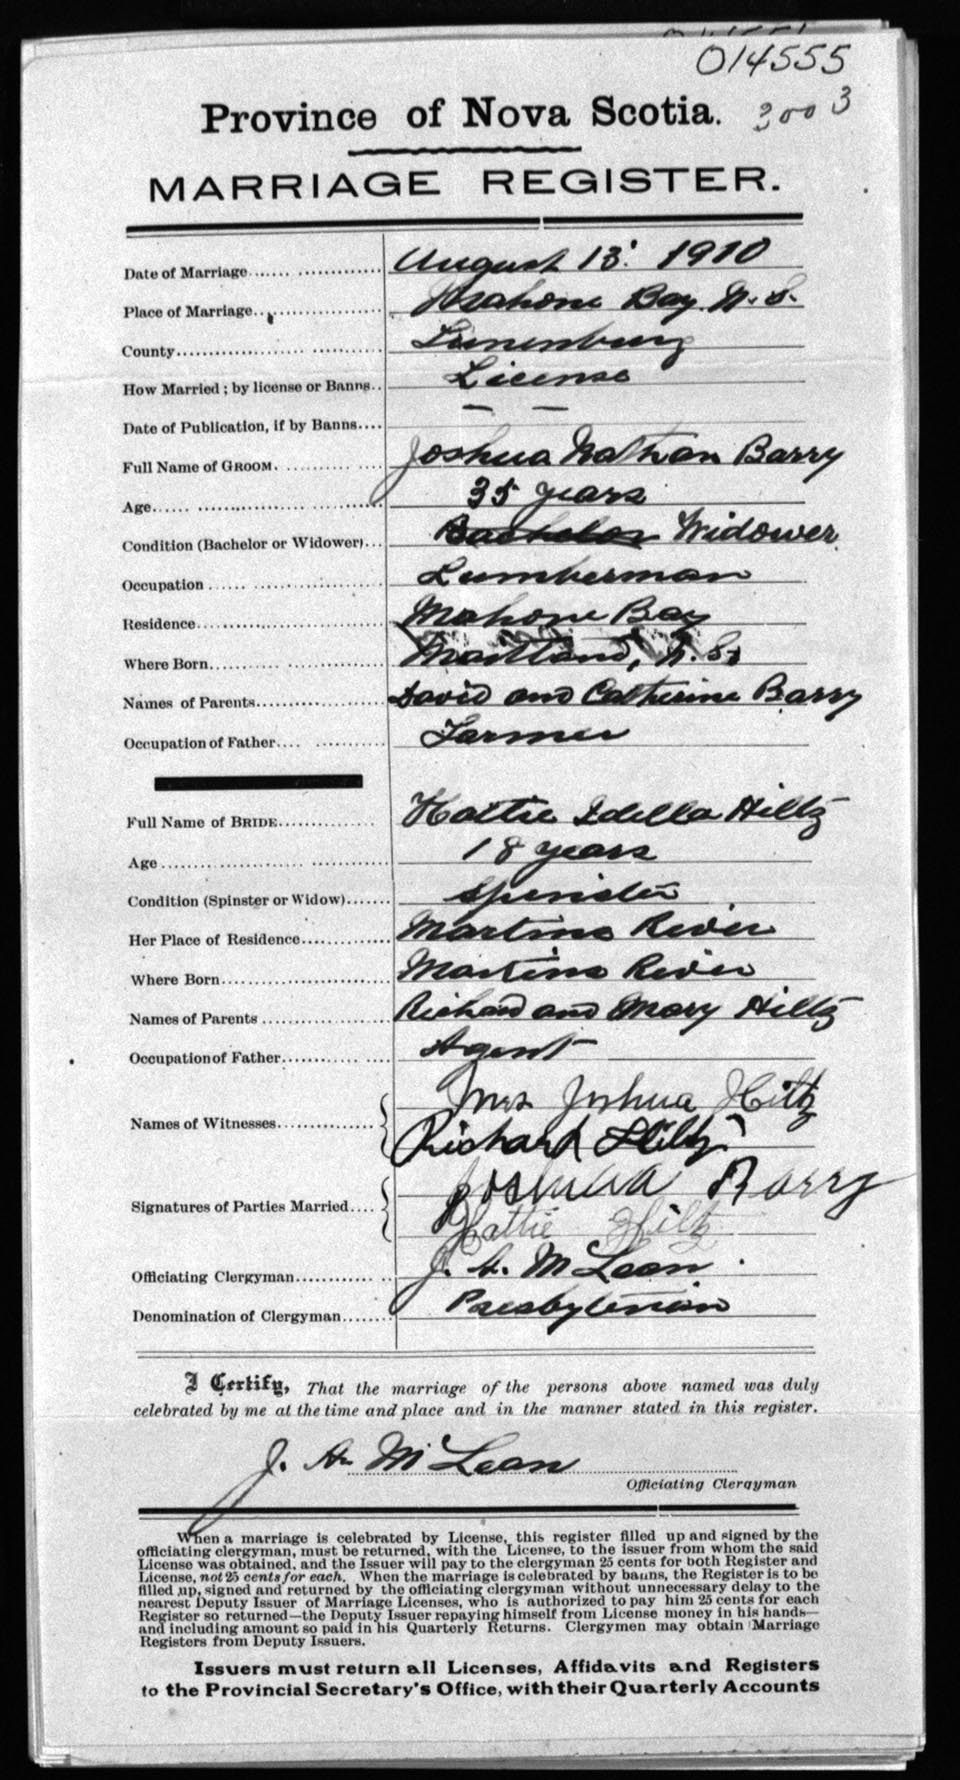 014555
Province of Nova Scotia. 3003
MARRIAGE REGISTER.
Date of Marriage...... August 13' 1910
Place of Marriage.. Mahone Bay. N. S.
County...... Lunenburg
How Married ; by license or Banns.. License
Date of Publication, if by Banns.... — —
Full Name of GROOM. Joshua Nathan Barry
Age...... 35 years
Condition (Bachelor or Widower)... Bachelor Widower
Occupation ...... Lumberman
Residence...... Mahone Bay
Where Born...... Maitland, N. S.
Names of Parents...... David and Catherine Barry
Occupation of Father.... Farmer
Full Name of BRIDE...... Hattie Idella Hiltz
Age...... 18 years
Condition (Spinster or Widow)....... Spinster
Her Place of Residence...... Martins River
Where Born...... Martins River
Names of Parents ...... Richard and Mary Hiltz
Occupation of Father...... Agent
Names of Witnesses...... Mrs Joshua Hiltz
Richard Hiltz
Signatures of Parties Married.... Joshuaa Barry
Hattie Hiltz
Officiating Clergyman...... J. A. McLean
Denomination of Clergyman...... Presbyterian
I Certify, That the marriage of the persons above named was duly
celebrated by me at the time and place and in the manner stated in this register.
J. A. McLean
Officiating Clergyman
When a marriage is celebrated by License, this register filled up and signed by the
officiating clergyman, must be returned, with the License, to the issuer from whom the said
License was obtained, and the Issuer will pay to the clergyman 25 cents for both Register and
License, not 25 cents for each. When the marriage is celebrated by banns, the Register is to be
filled up, signed and returned by the officiating clergyman without unnecessary delay to the
nearest Deputy Issuer of Marriage Licenses, who is authorized to pay him 25 cents for each
Register so returned—the Deputy Issuer repaying himself from License money in his hands—
and including amount so paid in his Quarterly Returns. Clergymen may obtain Marriage
Registers from Deputy Issuers.
Issuers must return all Licenses, Affidavits and Registers
to the Provincial Secretary's Office, with their Quarterly Accounts